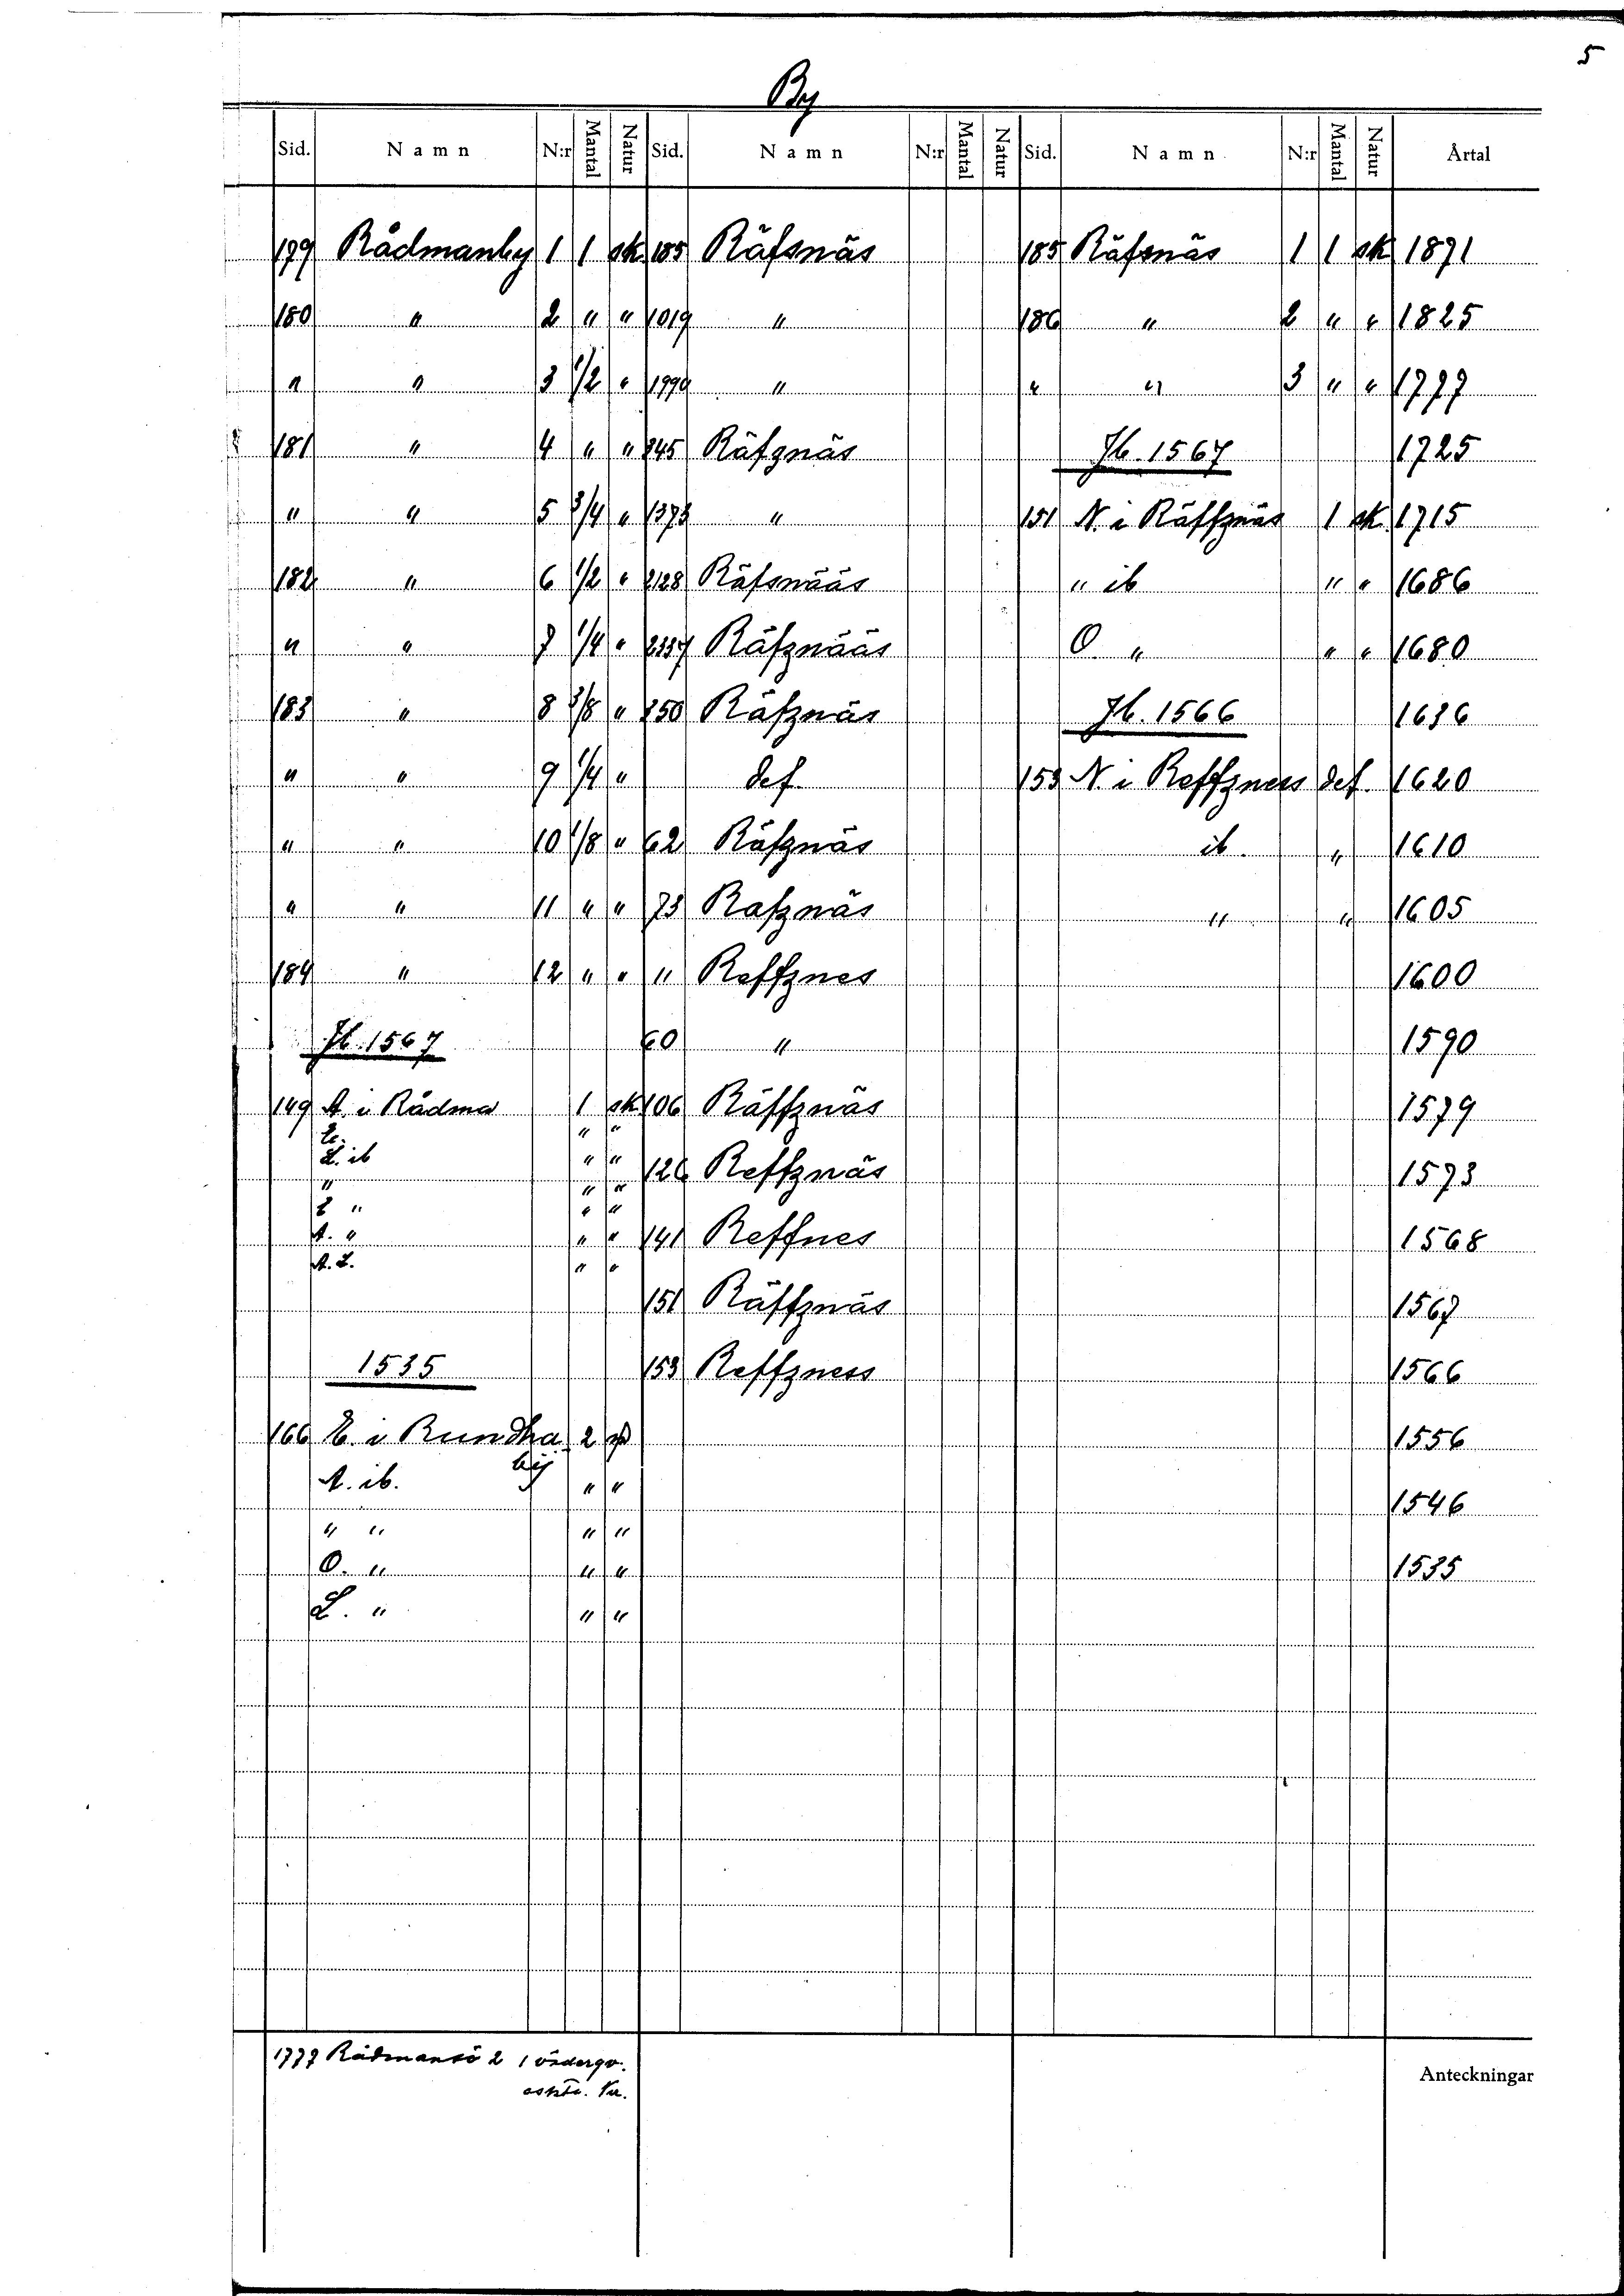 5
By
Sid. Namn N:r Mantal Natur Sid. Namn N:r Mantal Natur Sid. Namn N:r Mantal Natur Årtal
179 Rådmanby 1 1 sk 185 Räfsnäs 185 Räfsnäs 1 1 sk 1871
180 " 2 " " 1019 " 186 " 2 " " 1825
" " 3 1/2 " 1990 " " " 3 " " 1777
181 " 4 " " 845 Räfznäs Jb. 1567 1725
" " 5 3/4 " 1373 " 151 N. i Räffznäs 1 sk 1715
182 " 6 1/2 " 2128 Räfsnääs " ib " " 1686
" " 7 1/4 " 2337 Räfznääs O. " " " 1680
183 " 8 3/8 " 850 Räfznäs Jb. 1566 1636
" " 9 1/4 " def. 153 N. i Reffzness def. 1620
" " 10 1/8 " 62 Räfznäs ib. " 1610
" " 11 " " 73 Rafznäs " " 1605
184 " 12 " " " Reffznes 1600
Jb. 1567 60 " 1590
149 A. i Rådma 1 sk 106 Räffznäs 1579
E. " "
L. ib " " 126 Reffznäs 1573
" " "
E " " "
A. " " " 141 Reffnes 1568
A. L. " "
151 Räffznäs 1567
1535 153 Reffzness 1566
166 E. i Rundha 2 1556
by
A. ib. " " 1546
" " " "
O. " " " 1535
L. " " "
1777 Rådmansö 2 1 ödergo.
Anteckningar